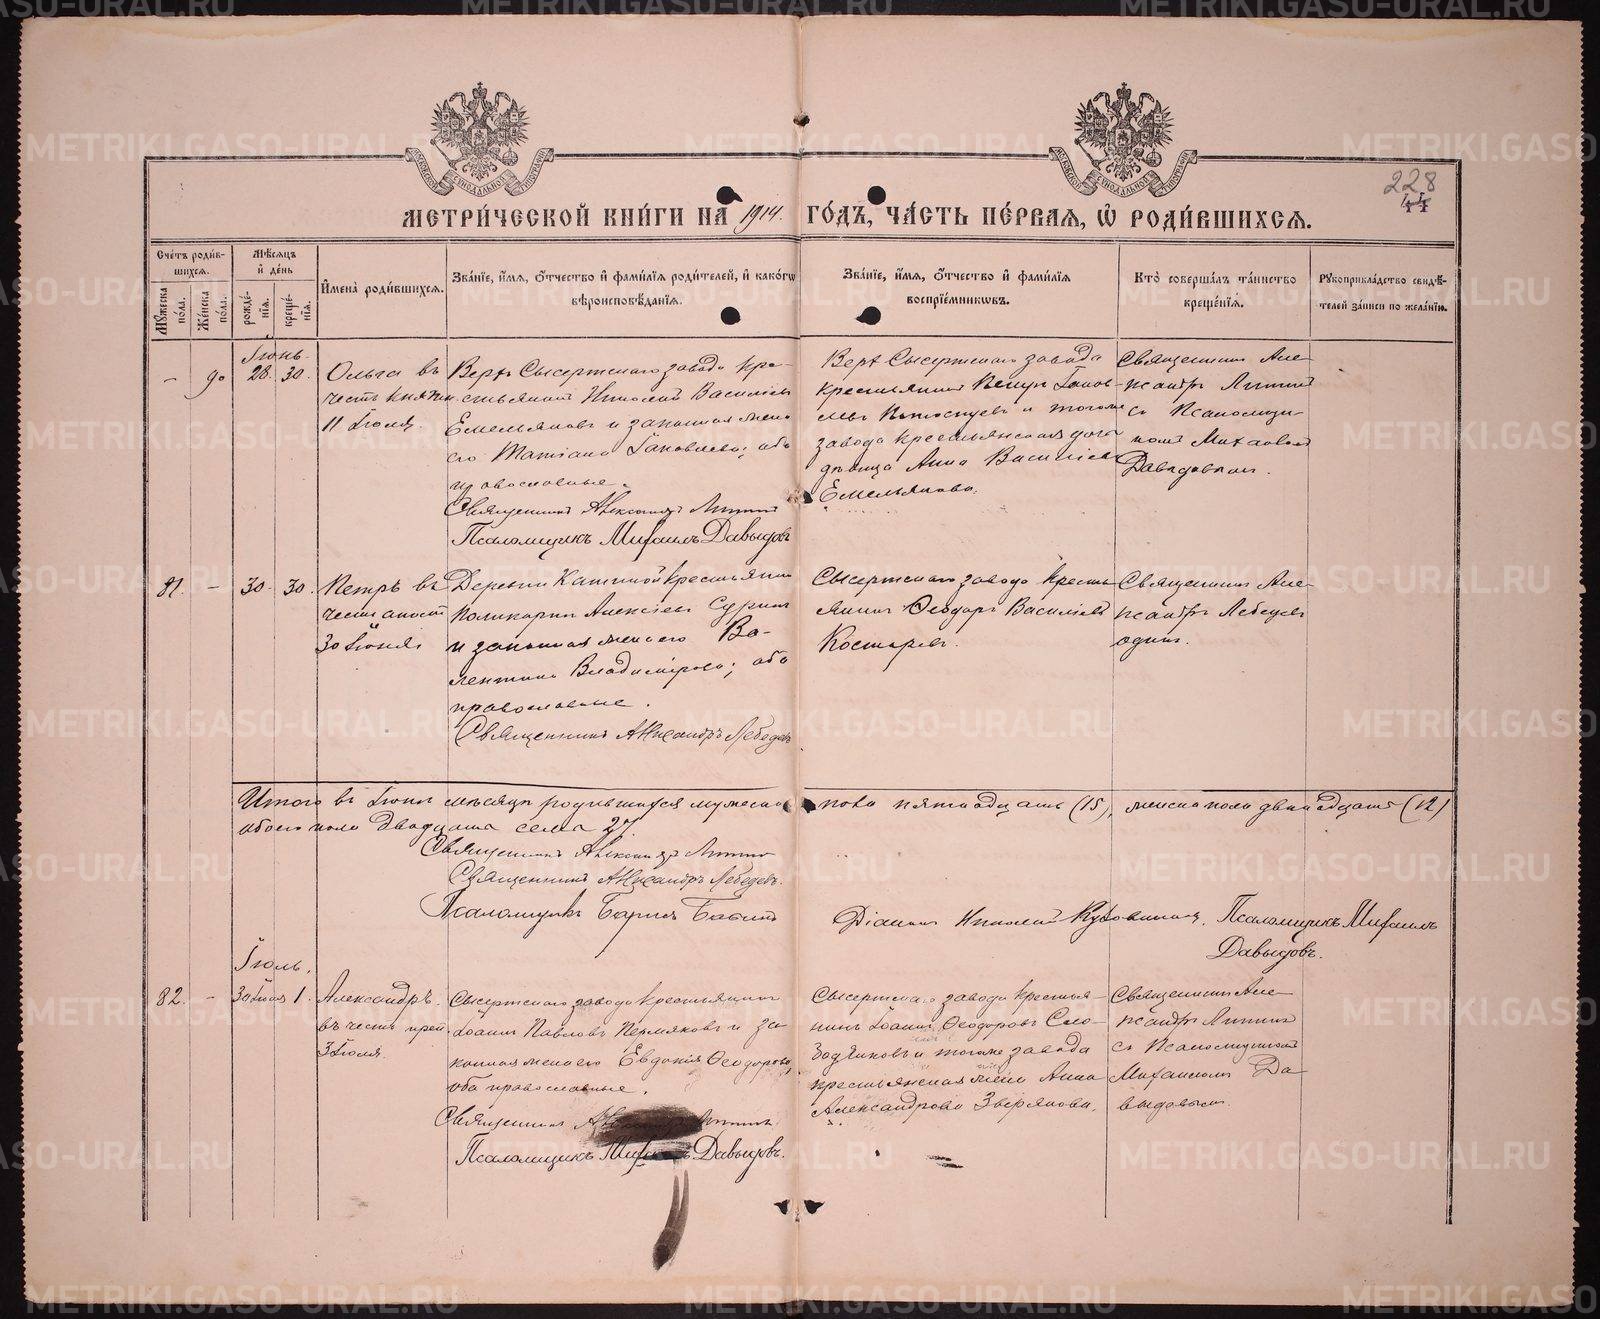 МЕТРИ́ЧЕСКОЙ КНИ́ГИ НА 1914. ГО́ДЪ, ЧА́СТЬ ПЕ́РВАѦ, Ѡ҆ РОДИ́ВШИХСѦ.
228
44
Сче́тъ роди́в-
шихсѧ.
Мꙋ́жеска по́ла.
Же́нска по́ла.
Мѣ́сѧцъ и҆ де́нь
рожде́нїѧ.
креще́нїѧ.
И҆мена̀ роди́вшихсѧ.
Зва́нїе, и҆́мѧ, ѻ҆́тчество и҆ фами́лїѧ роди́телей, и҆ како́гѡ
вѣроисповѣ́данїѧ.
Зва́нїе, и҆́мѧ, ѻ҆́тчество и҆ фами́лїѧ
воспрїе́мникѡвъ.
Кто̀ соверша́лъ та́инство
креще́нїѧ.
Рꙋкоприкла́дство свидѣ́-
телей за́писи по жела́нїю.
Іюнь.
– 90 28. 30.
Ольга въ
честь княгин.
11 Іюля.
Верх Сысертскаго завода кре-
стьянинъ Николай Васильевъ
Емельяновъ и законная жена
его Татіана Іаковлева; оба
православные.
Священникъ Александръ
Псаломщикъ Михаилъ Давыдовъ
Верх Сысертскаго завода
крестьянинъ Іаков-
левъ и тогоже
завода крестьянская дочь
дѣвица Анна Васильева
Емельянова.
Священникъ Але-
ксандръ
съ Псаломщи-
комъ Михаиломъ
Давыдовымъ.
81. – 30. 30.
Петръ въ
честь апост.
30 Іюня
Деревни крестьянинъ
Поликарпъ Алексіевъ
и законная жена его Ва-
лентина Владимірова; оба
православные.
Священникъ Александръ Лебедевъ
Сысертскаго завода кресть-
янинъ Ѳеодоръ Васильевъ
Костаревъ.
Священникъ Але-
ксандръ Лебедевъ
одинъ.
Итого въ Іюнѣ мѣсяцѣ родившихся мужеска пола пятнадцать (15), женска пола двѣнадцать (12)
обоего пола двадцать семь 27.
Священникъ Александръ
Священникъ Александръ Лебедевъ.
Псаломщикъ
Діаконъ Николай
Псаломщикъ Михаилъ
Давыдовъ.
Іюль.
82. – 30 Іюня 1.
Александръ
въ честь преп.
3 Іюля.
Сысертскаго завода крестьянинъ
Іоаннъ Павловъ Пермяковъ и за-
конная жена его Евдокія Ѳеодорова,
оба православные.
Священникъ
Псаломщикъ Михаилъ Давыдовъ.
Сысертскаго завода крестья-
нинъ Іоаннъ Ѳеодоровъ
и тогоже завода
крестьянская жена Анна
Александрова Звѣрянова.
Священникъ Але-
ксандръ
съ Псаломщикомъ
Михаиломъ Да-
выдовымъ.
METRIKI.GASO-URAL.RU